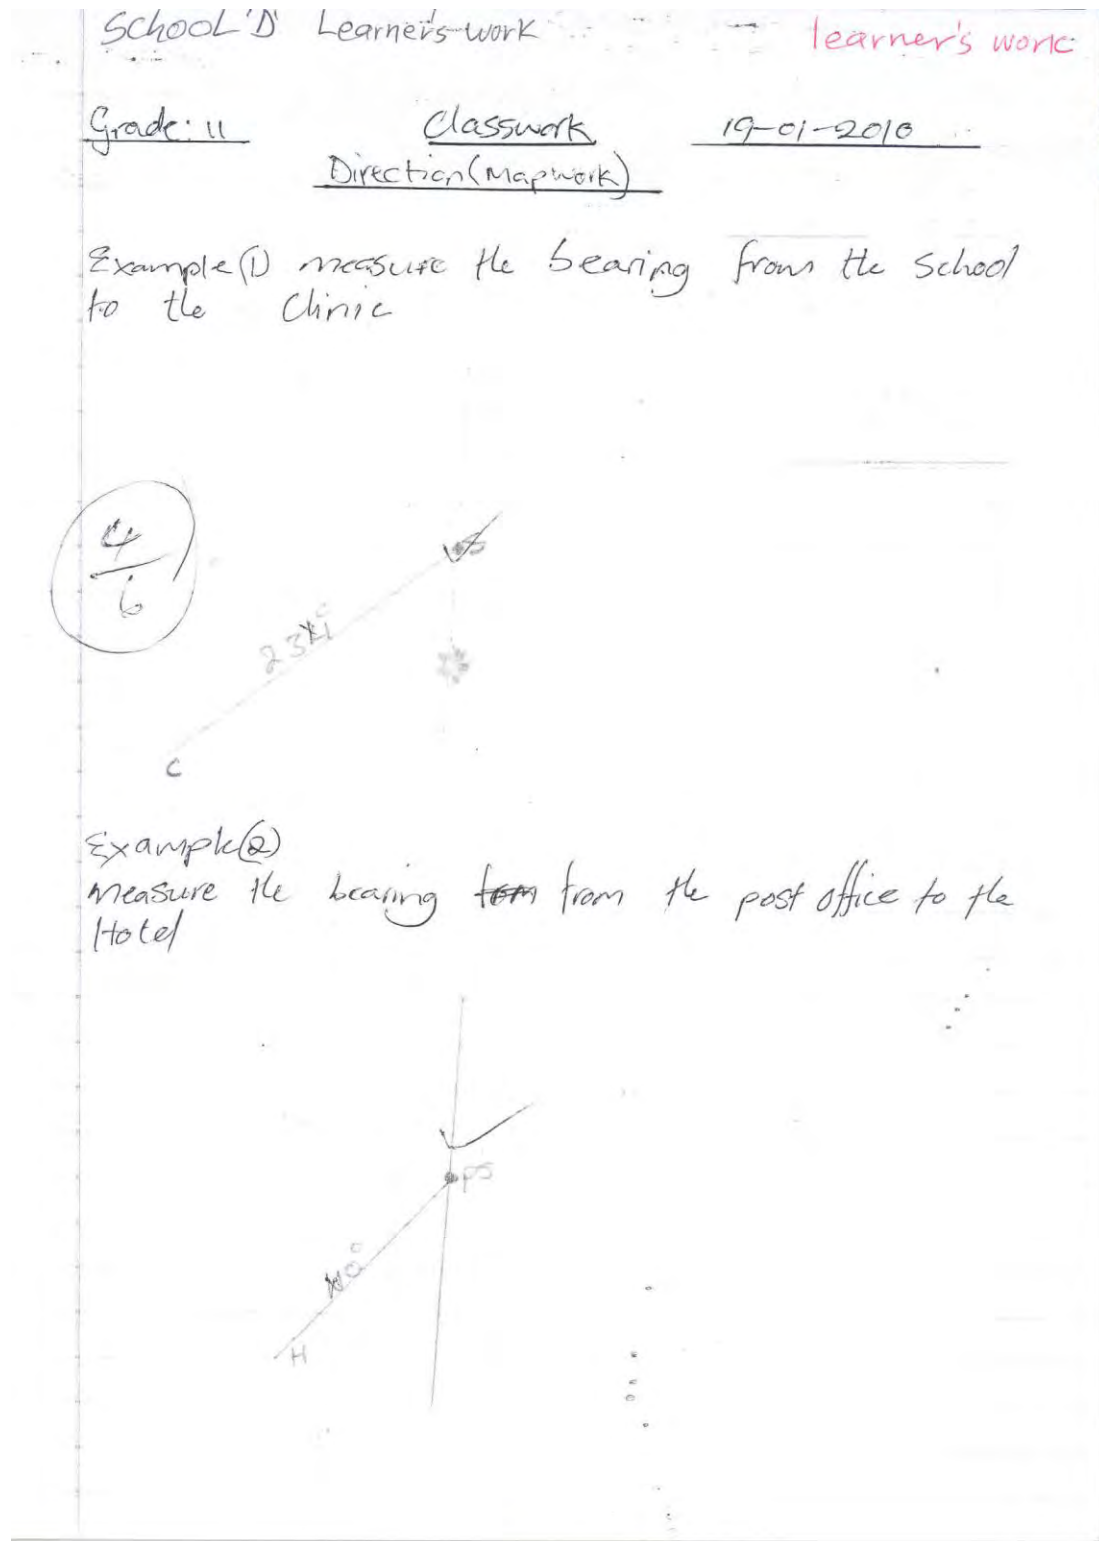 SCHOOL 'D' Learner's work
learner's work
Grade: 11 Classwork 19-01-2010
Direction (Mapwork)
Example (1) measure the bearing from the school
to the Clinic
4
6
C
Example (2)
Measure the bearing from the post office to the
Hotel
PS
H